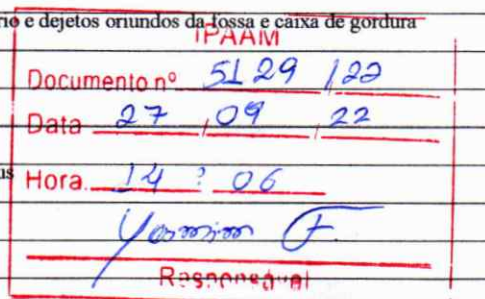 rio e dejetos oriundos da fossa e caixa de gordura
IPAAM
Documento nº 5129 / 22
Data 27 / 09 / 22
us
Hora 14 : 06
Yasmim F.
Responsável